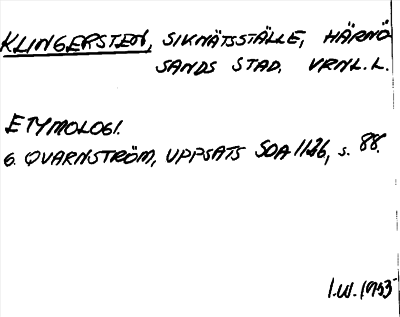 KLINGERSTEN, SIKNÄTSSTÄLLE, HÄRNÖ
SANDS STAD. VRNL. L.
ETYMOLOGI.
G. QVARNSTRÖM, UPPSATS SOA 1126, s. 88.
I.W. 1953